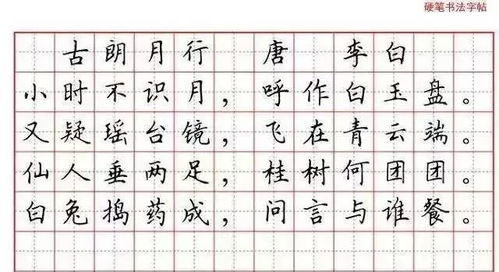 硬笔书法字帖
古朗月行 唐 李白
小时不识月，呼作白玉盘。
又疑瑶台镜，飞在青云端。
仙人垂两足，桂树何团团。
白兔捣药成，问言与谁餐。